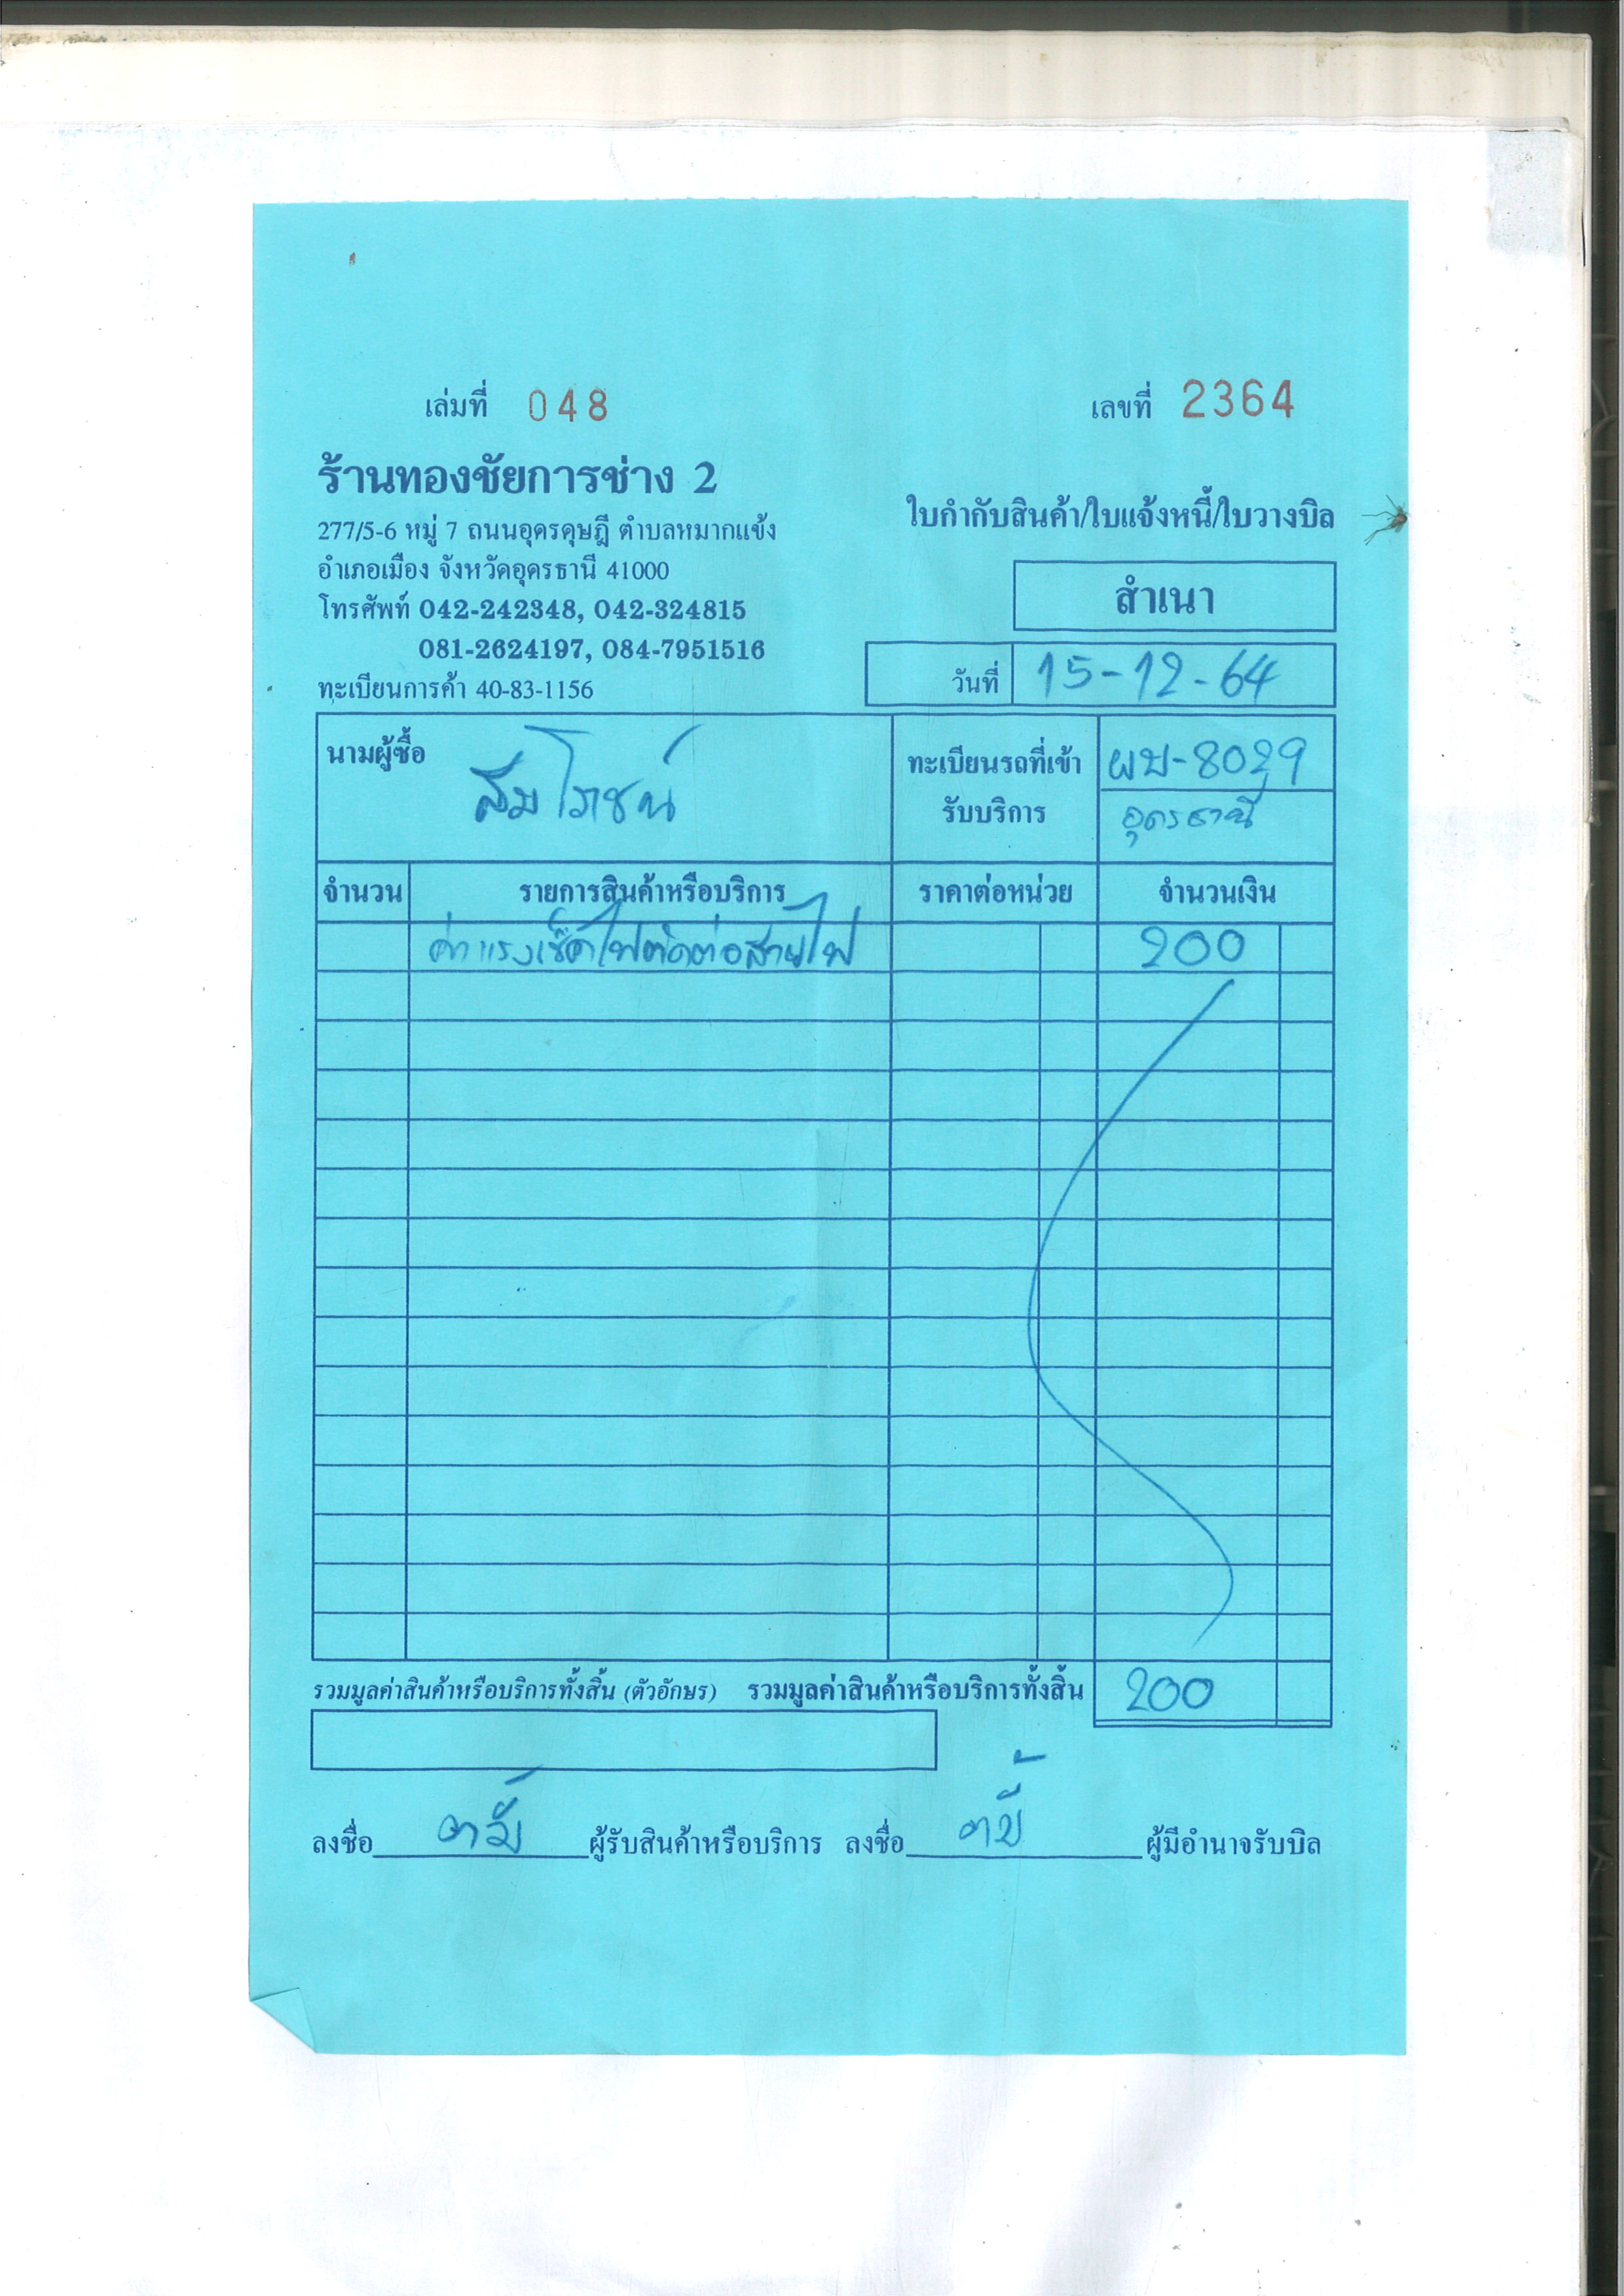 เล่มที่ 048 เลขที่ 2364
ร้านทองชัยการช่าง 2
ใบกำกับสินค้า/ใบแจ้งหนี้/ใบวางบิล
277/5-6 หมู่ 7 ถนนอุดรดุษฎี ตำบลหมากแข้ง
อำเภอเมือง จังหวัดอุดรธานี 41000
สำเนา
โทรศัพท์ 042-242348, 042-324815
081-2624197, 084-7951516
วันที่ 15-12-64
ทะเบียนการค้า 40-83-1156
นามผู้ซื้อ
ทะเบียนรถที่เข้า
รับบริการ
8029
อุดรธานี
จำนวน รายการสินค้าหรือบริการ ราคาต่อหน่วย จำนวนเงิน
ค่าแรงเช็คไฟตัดต่อสายไฟ 200
รวมมูลค่าสินค้าหรือบริการทั้งสิ้น (ตัวอักษร) รวมมูลค่าสินค้าหรือบริการทั้งสิ้น 200
ลงชื่อ ผู้รับสินค้าหรือบริการ ลงชื่อ ผู้มีอำนาจรับบิล